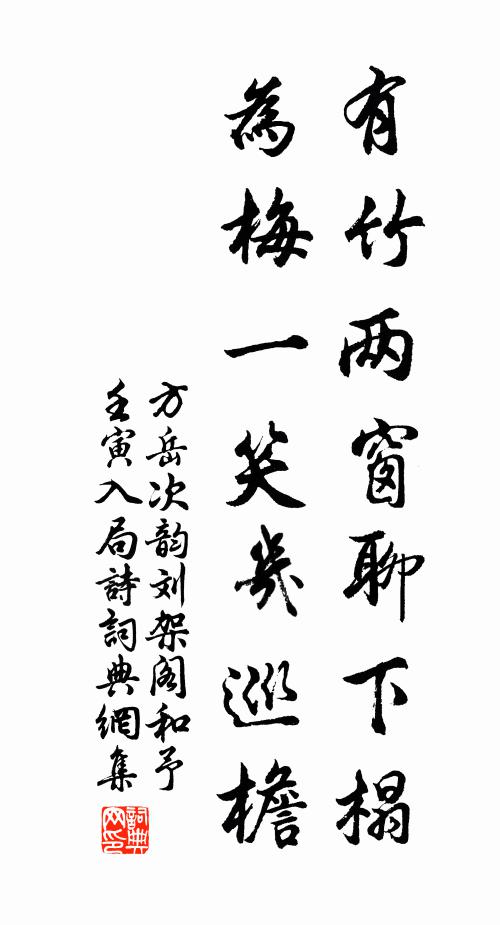 有竹两窗聊下榻
為梅一笑幾巡檐
方岳次韵刘架阁和予
壬寅入局詩詞典網集
詞典
网印